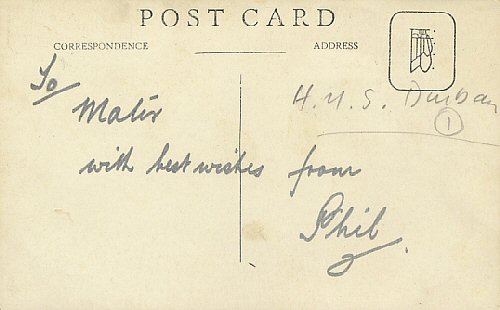 POST CARD
CORRESPONDENCE
ADDRESS
To
Mater
with best wishes from
Phil.
H.M.S. Durban
1